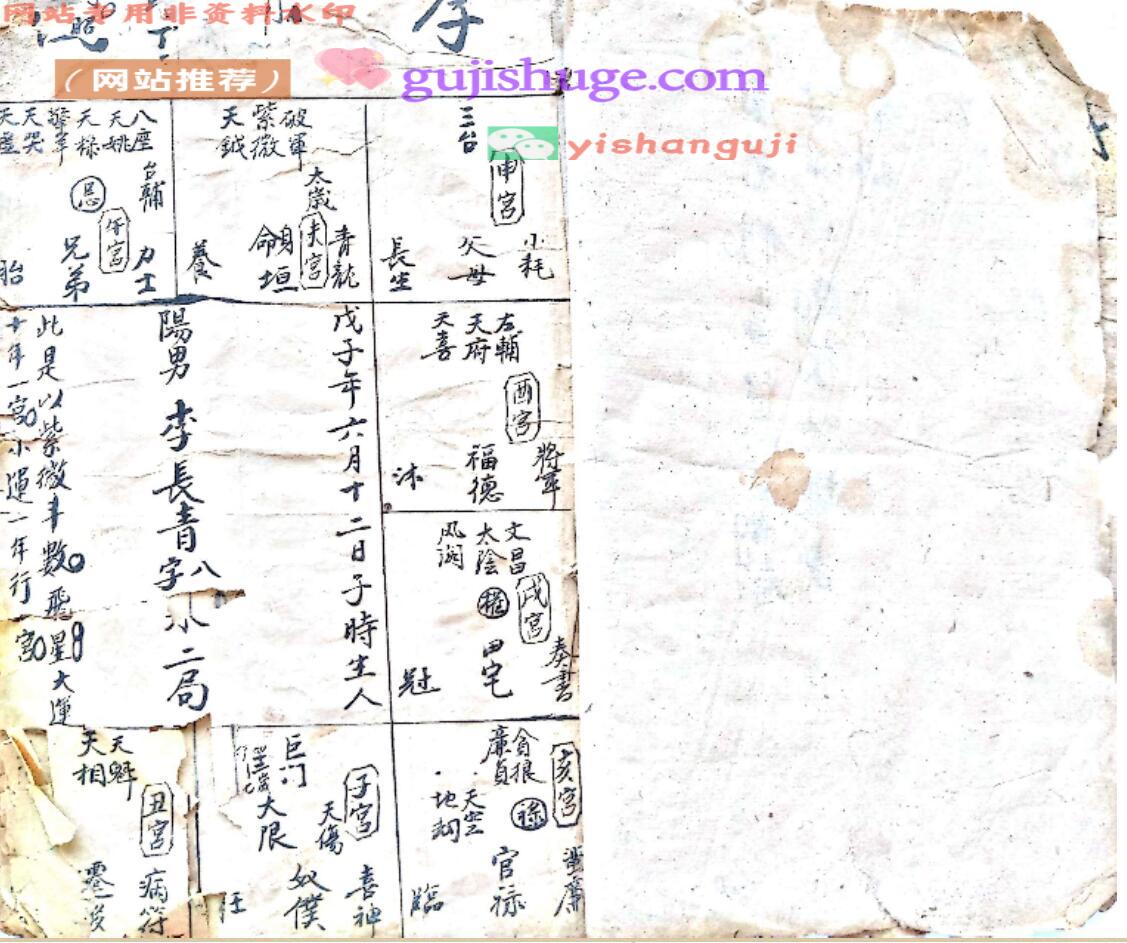 网站专用非资料水印
（网站推荐）
gujishuge.com
yishanguji
照
三台
申宮
小耗
父母
長生
破軍
紫微
天鉞
太歲
未宮
青龍
命垣
養
八座
天姚
天梁
天哭
天虛
台輔
忌
午宮
力士
兄弟
胎
左輔
天府
天喜
酉宮
將軍
福德
沐
文昌
太陰
戌宮
權
奏書
田宅
冠
貪狼
廉貞
亥宮
祿
天空
地劫
官祿
臨
巨门
子宮
天傷
大限
喜神
奴僕
旺
天魁
天相
丑宮
病符
戊子年六月十二日子時生人
陽男 李長青八字水二局
此是以紫微斗數飛星大運
十年一宮小運一年行一宮